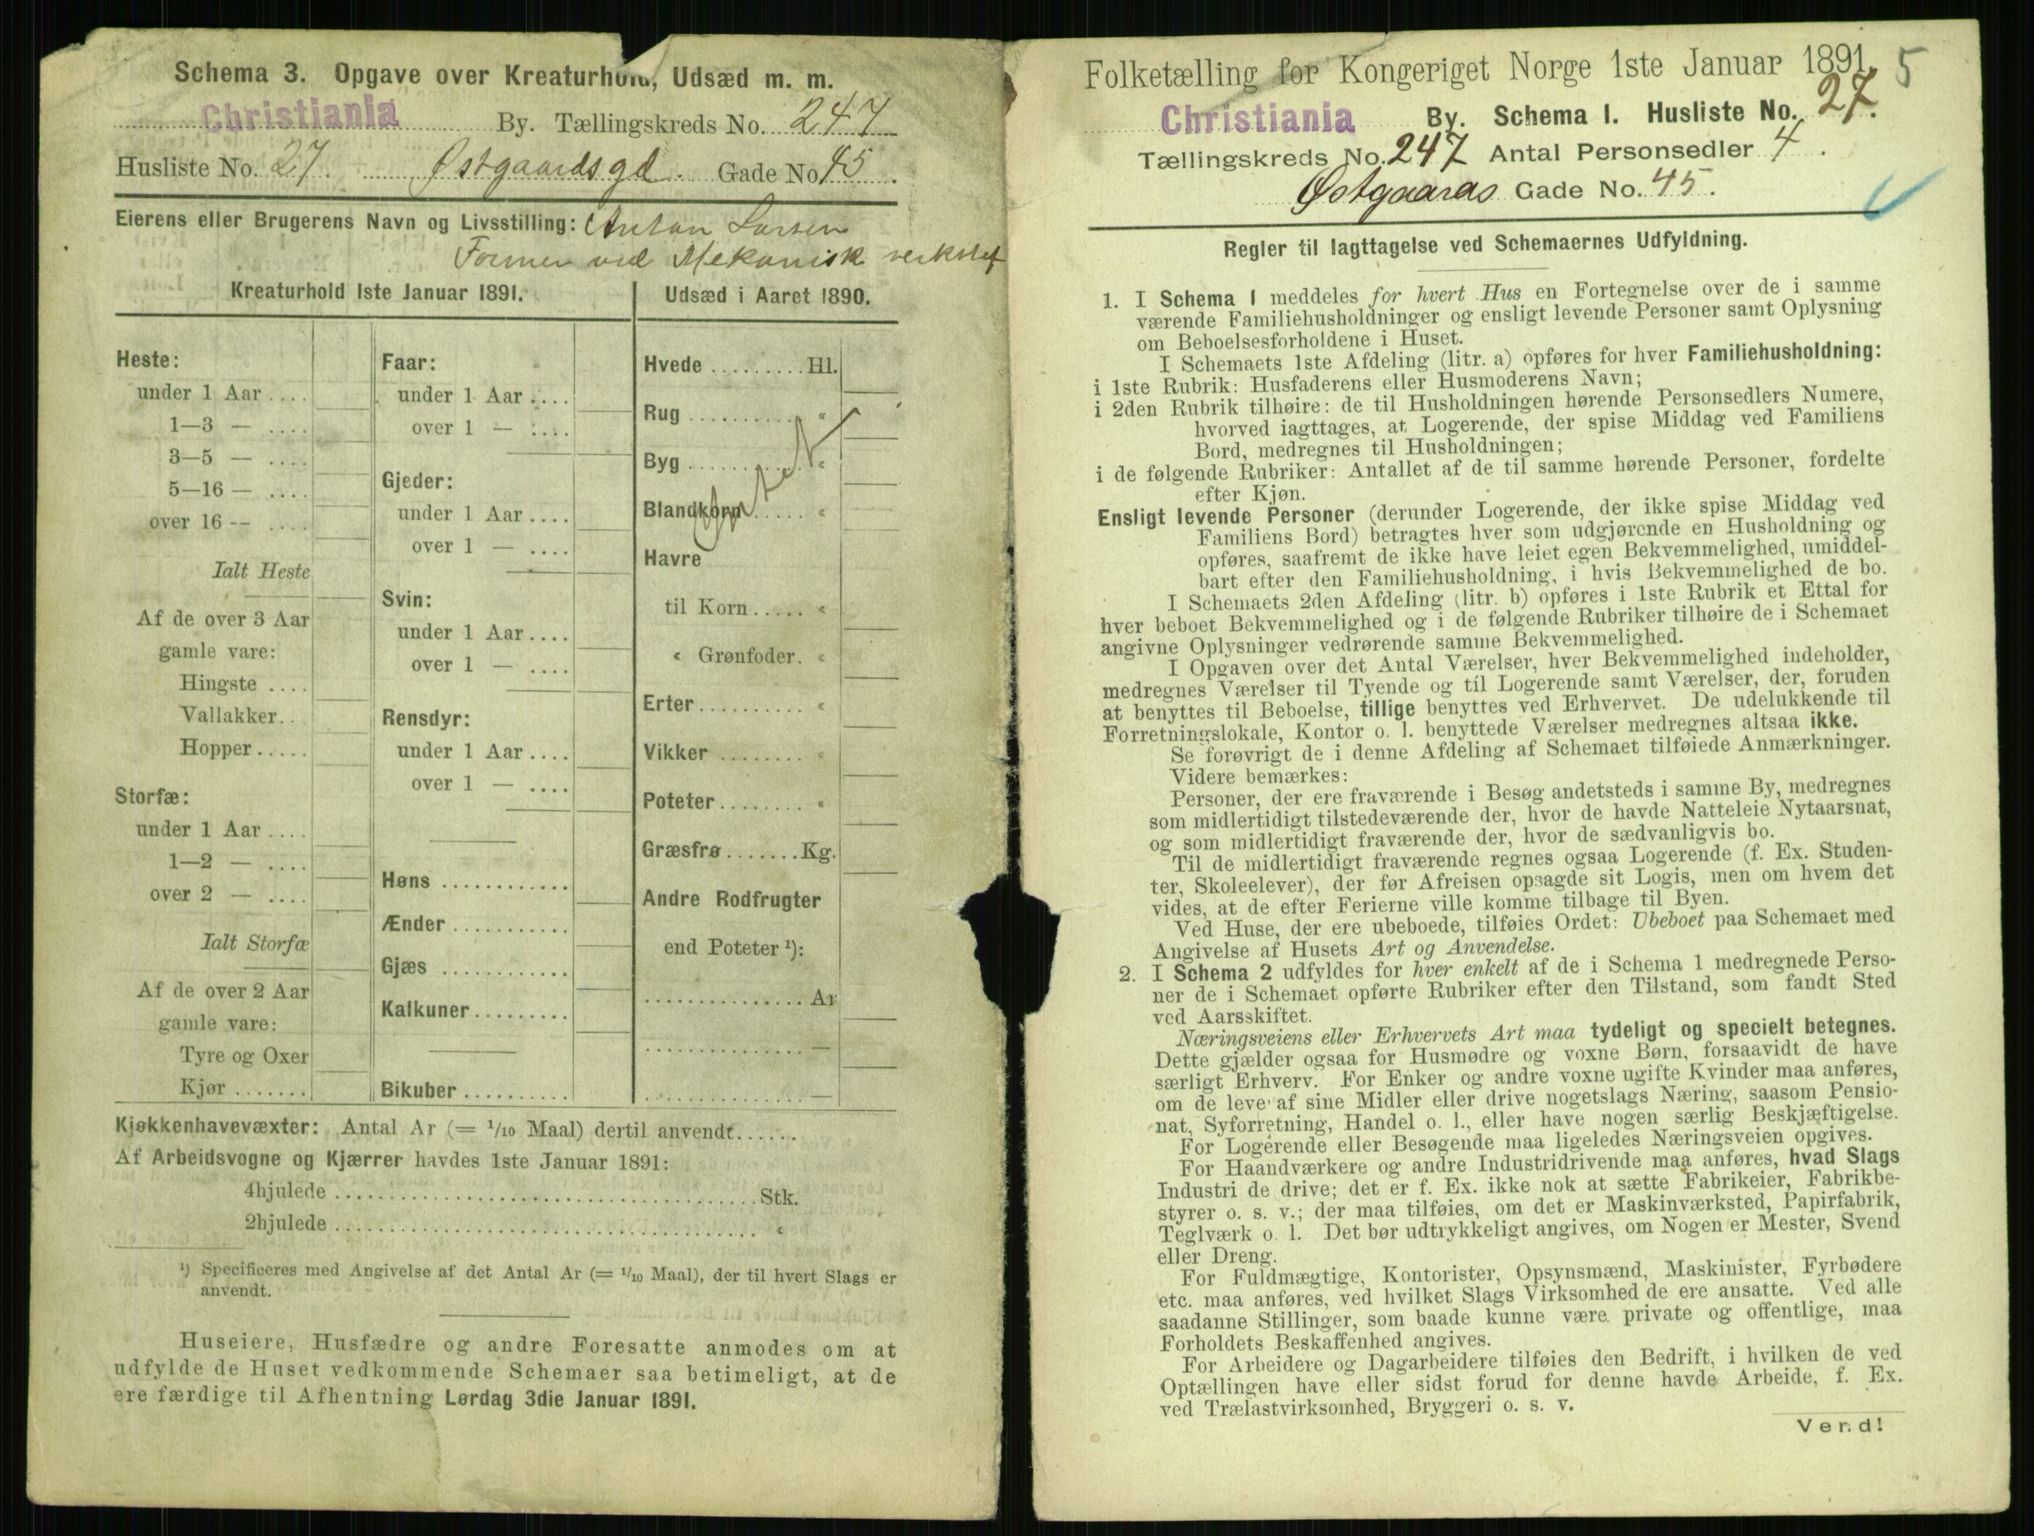 Schema 3. Opgave over Kreaturhold, Udsæd m. m.
Christiania By. Tællingskreds No. 247
Husliste No. 27. Østgaardsgd. Gade No. 45.
Eierens eller Brugerens Navn og Livsstilling: Anton Larsen
Former ved Mekanisk verksted
Kreaturhold 1ste Januar 1891.
Heste:
under 1 Aar ....
1—3 — ....
3—5 — ....
5—16 — ....
over 16 -- ....
Ialt Heste
Af de over 3 Aar
gamle vare:
Hingste ....
Vallakker...
Hopper .....
Storfæ:
under 1 Aar ....
1—2 — ....
over 2 — ....
Ialt Storfæ
Af de over 2 Aar
gamle vare:
Tyre og Oxer
Kjør .......
Faar:
under 1 Aar ....
over 1 — ....
Gjeder:
under 1 Aar ....
over 1 — ....
Svin:
under 1 Aar ....
over 1 — ....
Rensdyr:
under 1 Aar ....
over 1 — ....
Høns ............
Ænder ...........
Gjæs ............
Kalkuner .........
Bikuber ..........
Udsæd i Aaret 1890.
Hvede ......... Hl.
Rug ........... «
Byg ........... «
Blandkorn ..... «
Intet
Havre
til Korn ..... «
« Grønfoder. «
Erter .......... «
Vikker ........ «
Poteter ........ «
Græsfrø ....... Kg.
Andre Rodfrugter
end Poteter ¹):
............... Ar
............... —
............... —
Kjøkkenhavevæxter: Antal Ar (= 1/10 Maal) dertil anvendt ......
Af Arbeidsvogne og Kjærrer havdes 1ste Januar 1891:
4hjulede ........................................ Stk.
2hjulede ........................................ «
¹) Specificeres med Angivelse af det Antal Ar (= 1/10 Maal), der til hvert Slags er
anvendt.
Huseiere, Husfædre og andre Foresatte anmodes om at
udfylde de Huset vedkommende Schemaer saa betimeligt, at de
ere færdige til Afhentning Lørdag 3die Januar 1891.
Folketælling for Kongeriget Norge 1ste Januar 1891. 5
Christiania By. Schema 1. Husliste No. 27.
Tællingskreds No. 247 Antal Personsedler 4.
Østgaards Gade No. 45.
Regler til Iagttagelse ved Schemaernes Udfyldning.
1. I Schema 1 meddeles for hvert Hus en Fortegnelse over de i samme
værende Familiehusholdninger og ensligt levende Personer samt Oplysning
om Beboelsesforholdene i Huset.
I Schemaets 1ste Afdeling (litr. a) opføres for hver Familiehusholdning:
i 1ste Rubrik: Husfaderens eller Husmoderens Navn;
i 2den Rubrik tilhøire: de til Husholdningen hørende Personsedlers Numere,
hvorved iagttages, at Logerende, der spise Middag ved Familiens
Bord, medregnes til Husholdningen;
i de følgende Rubriker: Antallet af de til samme hørende Personer, fordelte
efter Kjøn.
Ensligt levende Personer (derunder Logerende, der ikke spise Middag ved
Familiens Bord) betragtes hver som udgjørende en Husholdning og
opføres, saafremt de ikke have leiet egen Bekvemmelighed, umiddel-
bart efter den Familiehusholdning, i hvis Bekvemmelighed de bo.
I Schemaets 2den Afdeling (litr. b) opføres i 1ste Rubrik et Ettal for
hver beboet Bekvemmelighed og i de følgende Rubriker tilhøire de i Schemaet
angivne Oplysninger vedrørende samme Bekvemmelighed.
I Opgaven over det Antal Værelser, hver Bekvemmelighed indeholder,
medregnes Værelser til Tyende og til Logerende samt Værelser, der, foruden
at benyttes til Beboelse, tillige benyttes ved Erhvervet. De udelukkende til
Forretningslokale, Kontor o. l. benyttede Værelser medregnes altsaa ikke.
Se forøvrigt de i denne Afdeling af Schemaet tilføiede Anmærkninger.
Videre bemærkes:
Personer, der ere fraværende i Besøg andetsteds i samme By, medregnes
som midlertidigt tilstedeværende der, hvor de havde Natteleie Nytaarsnat,
og som midlertidigt fraværende der, hvor de sædvanligvis bo.
Til de midlertidigt fraværende regnes ogsaa Logerende (f. Ex. Studen-
ter, Skoleelever), der før Afreisen opsagde sit Logis, men om hvem det
vides, at de efter Ferierne ville komme tilbage til Byen.
Ved Huse, der ere ubeboede, tilføies Ordet: Ubeboet paa Schemaet med
Angivelse af Husets Art og Anvendelse.
2. I Schema 2 udfyldes for hver enkelt af de i Schema 1 medregnede Perso-
ner de i Schemaet opførte Rubriker efter den Tilstand, som fandt Sted
ved Aarsskiftet.
Næringsveiens eller Erhvervets Art maa tydeligt og specielt betegnes.
Dette gjælder ogsaa for Husmødre og voxne Børn, forsaavidt de have
særligt Erhverv. For Enker og andre voxne ugifte Kvinder maa anføres,
om de leve af sine Midler eller drive nogetslags Næring, saasom Pensio-
nat, Syforretning, Handel o. l., eller have nogen særlig Beskjæftigelse.
For Logerende eller Besøgende maa ligeledes Næringsveien opgives.
For Haandværkere og andre Industridrivende maa anføres, hvad Slags
Industri de drive; det er f. Ex. ikke nok at sætte Fabrikeier, Fabrikbe-
styrer o. s. v.; der maa tilføies, om det er Maskinværksted, Papirfabrik,
Teglværk o. l. Det bør udtrykkeligt angives, om Nogen er Mester, Svend
eller Dreng.
For Fuldmægtige, Kontorister, Opsynsmænd, Maskinister, Fyrbødere
etc. maa anføres, ved hvilket Slags Virksomhed de ere ansatte. Ved alle
saadanne Stillinger, som baade kunne være private og offentlige, maa
Forholdets Beskaffenhed angives.
For Arbeidere og Dagarbeidere tilføies den Bedrift, i hvilken de ved
Optællingen have eller sidst forud for denne havde Arbeide, f. Ex.
ved Trælastvirksomhed, Bryggeri o. s. v.
Vend!